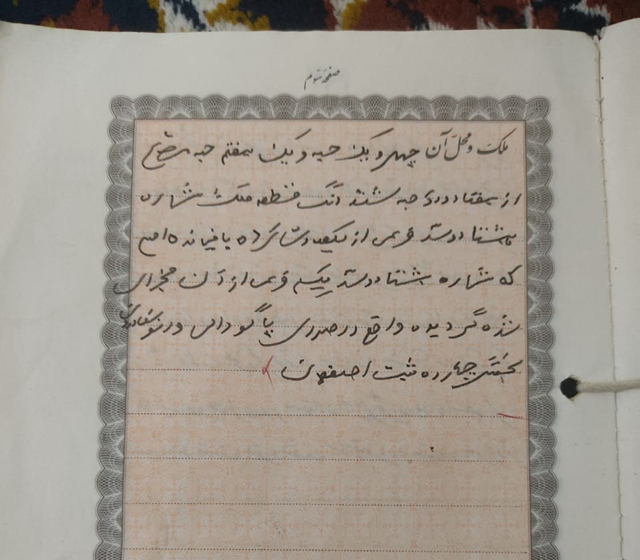 صفحه سوم
ملک و محل آن چهار و یک حبه و یک هفتم حبه مشاع
از هفتاد و دو حبه ششدانگ قطعه ملک شماره
هشتاد و سه فرعی از یکصد و باقیمانده اصلی
که شماره هشتاد و سه فرعی از آن مجزی
شده گردیده واقع در صحرای پاگودالی
بخش چهارده ثبت اصفهان